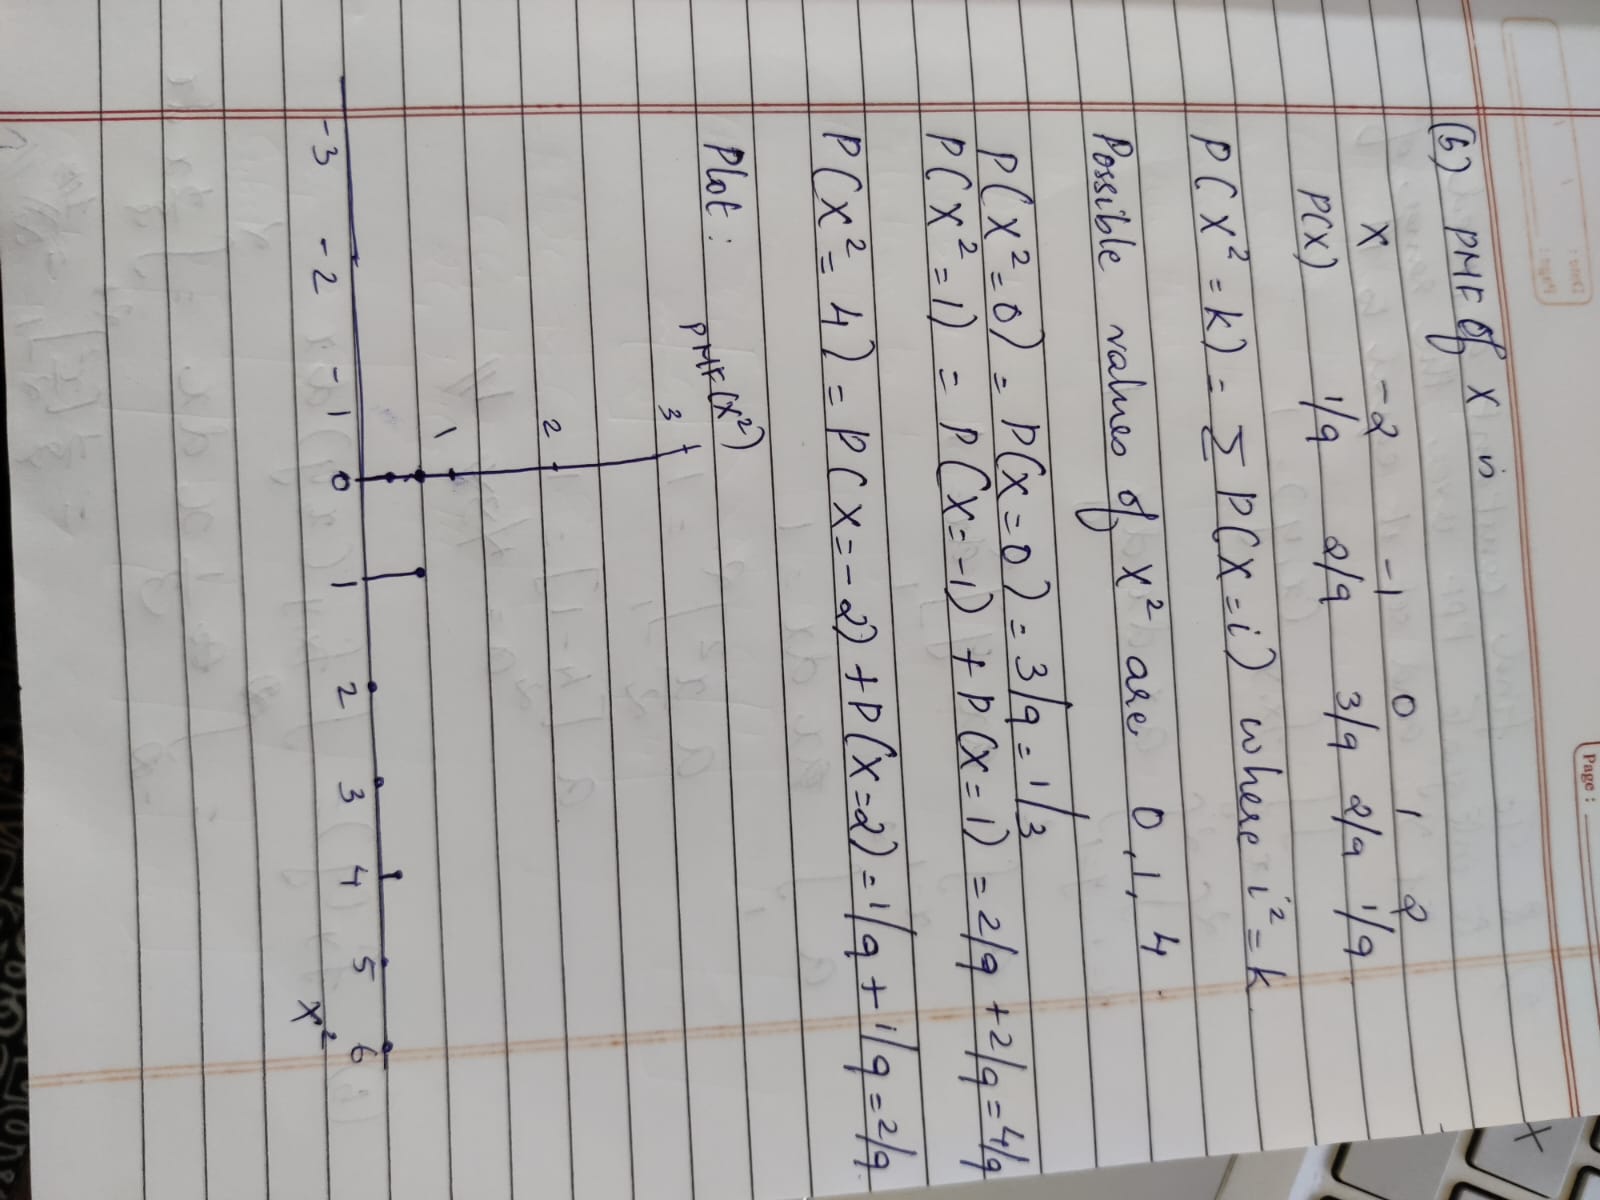 Page :
(b) PMF of X is
X -2 -1 0 1 2
P(X) 1/9 2/9 3/9 2/9 1/9
P(X² = k) = Σ P(X = i) where i² = k
Possible values of X² are 0, 1, 4.
P(X² = 0) = P(X = 0) = 3/9 = 1/3
P(X² = 1) = P(X = -1) + P(X = 1) = 2/9 + 2/9 = 4/9
P(X² = 4) = P(X = -2) + P(X = 2) = 1/9 + 1/9 = 2/9.
Plot :
PMF(X²)
3
2
1
-3 -2 -1 0 1 2 3 4 5 6
X²